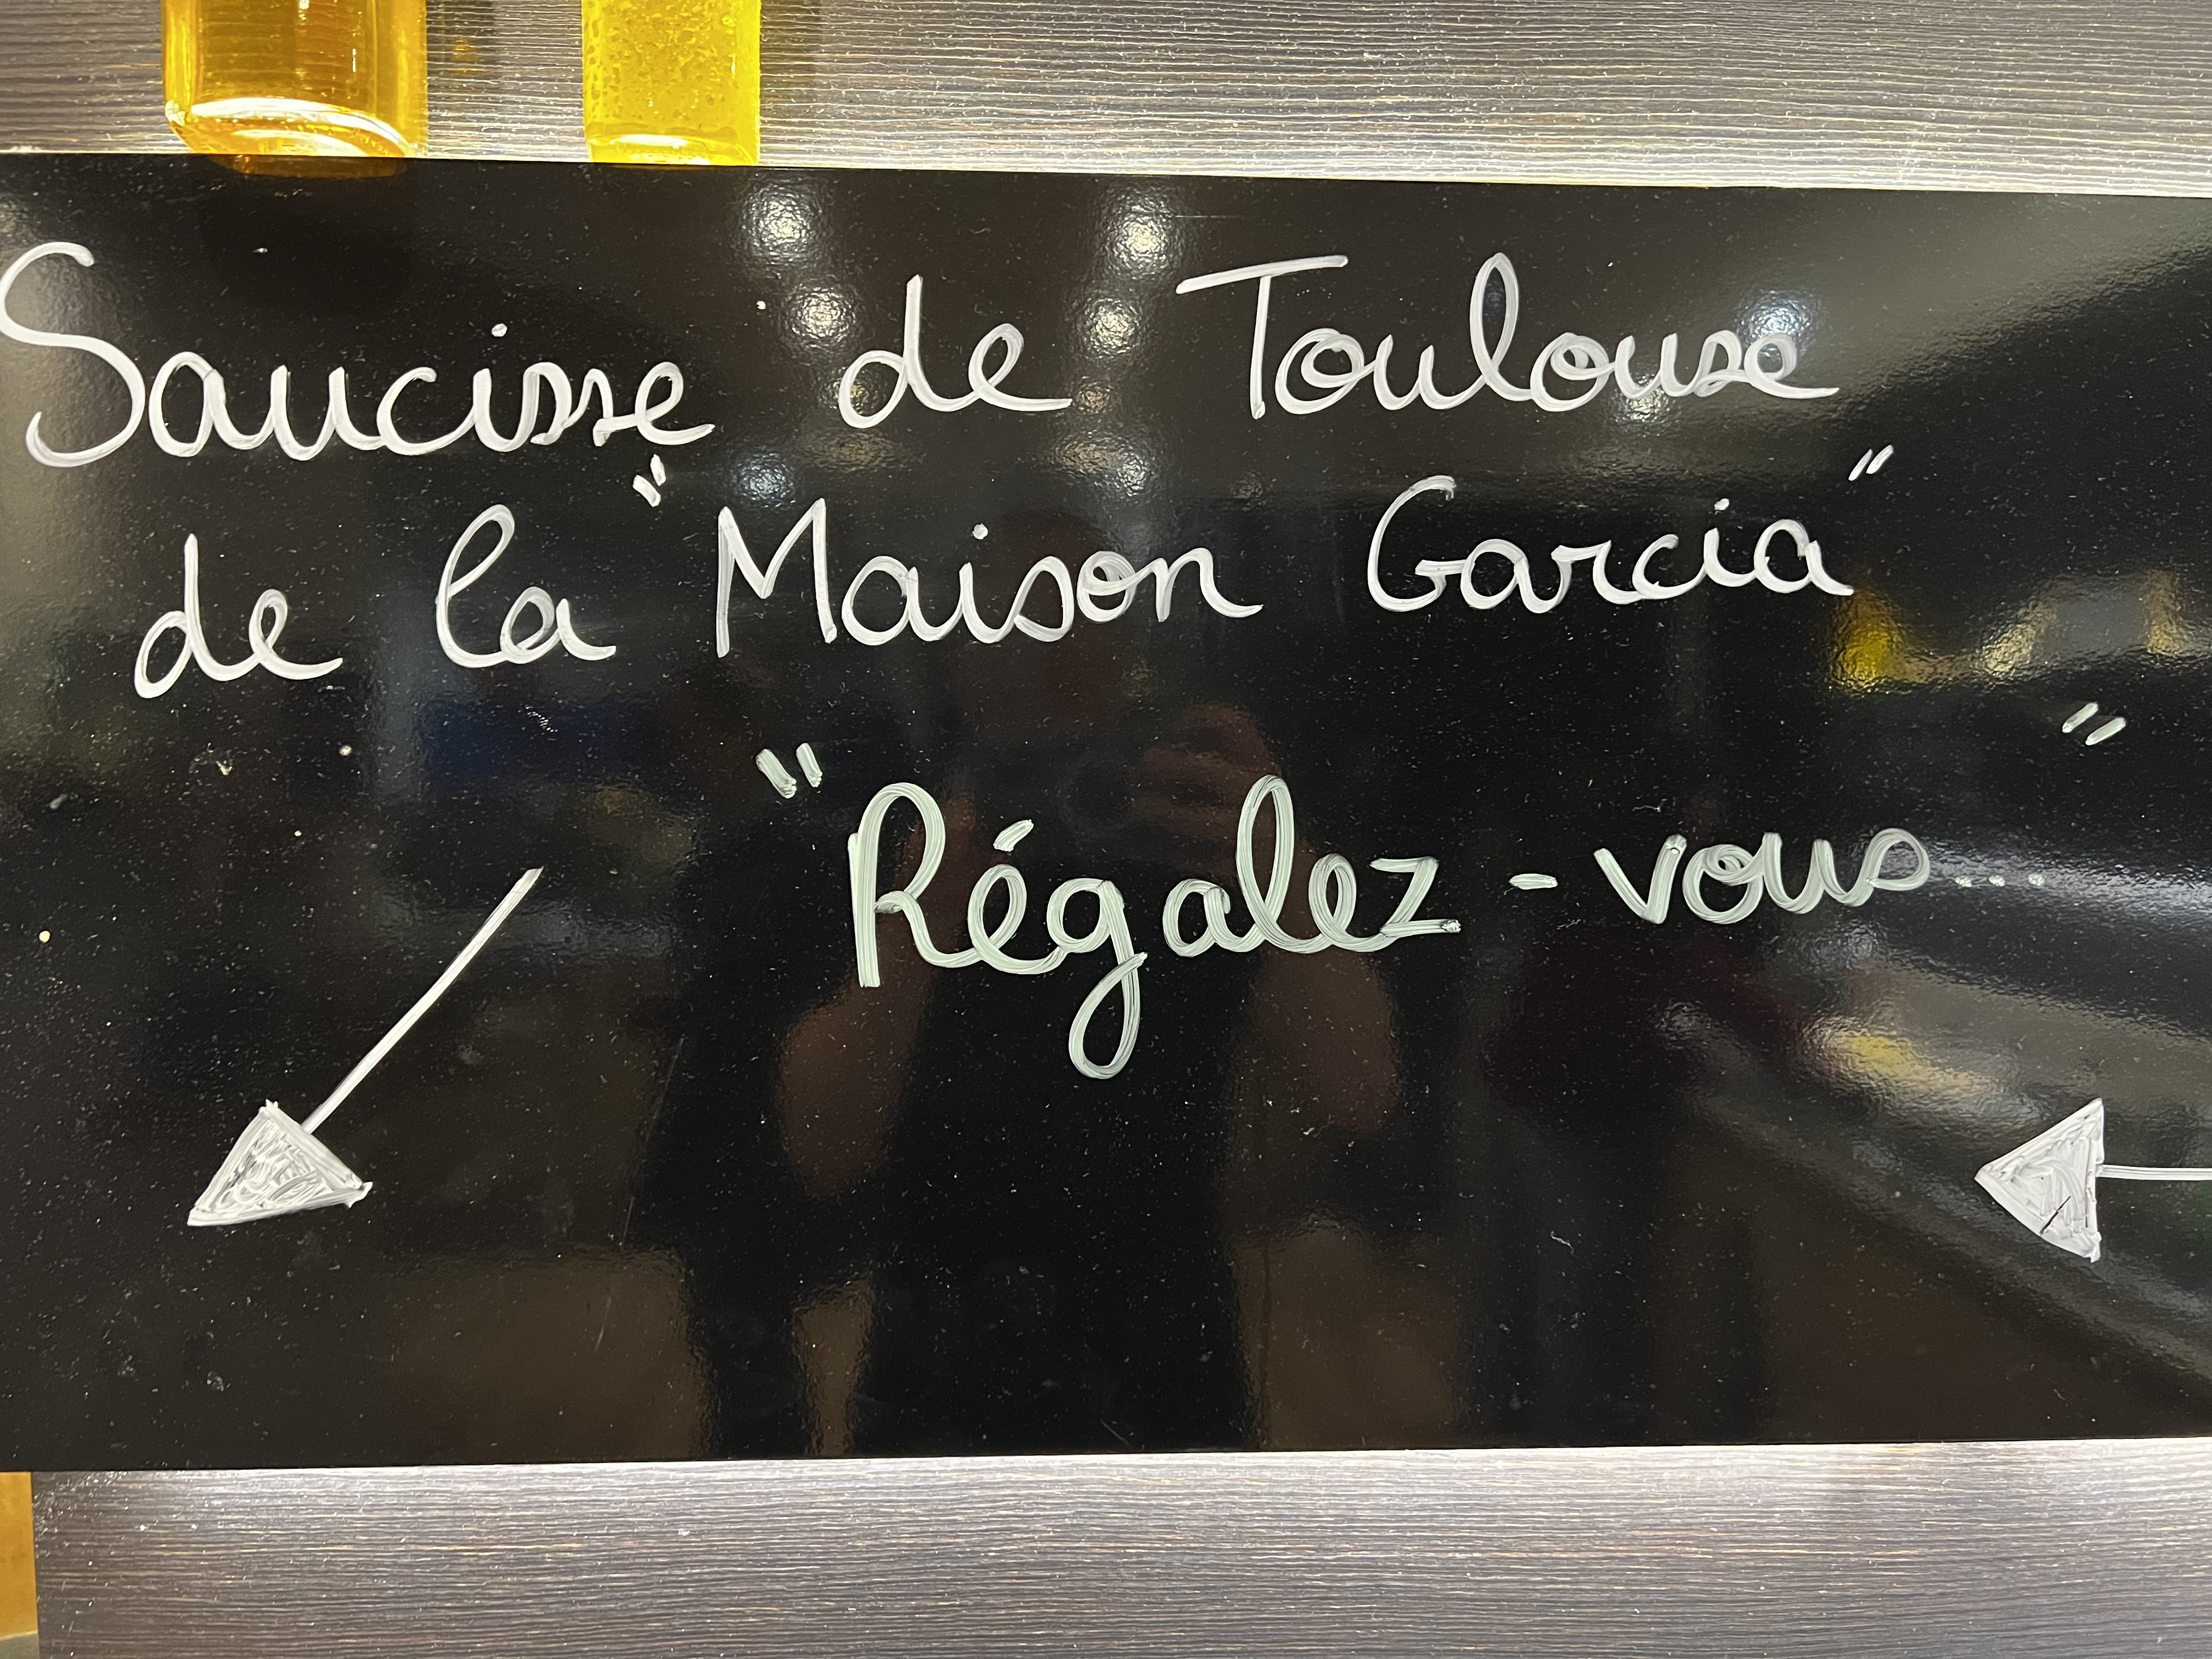 Saucisse de Toulouse
de la "Maison Garcia"
"Régalez-vous..."